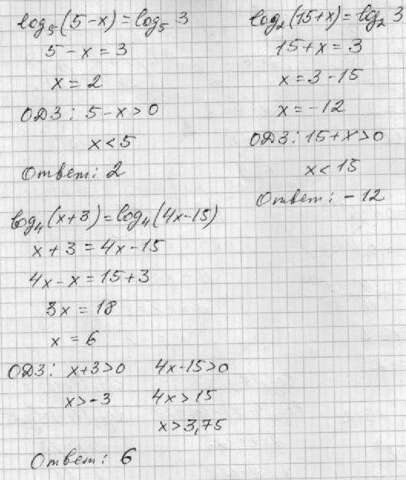 log₅(5-x)=log₅ 3
5-x=3
x=2
ОДЗ: 5-x>0
x<5
Ответ: 2
log₂(15+x)=log₂ 3
15+x=3
x=3-15
x=-12
ОДЗ: 15+x>0
x<15
Ответ: -12
log₄(x+3)=log₄(4x-15)
x+3=4x-15
4x-x=15+3
3x=18
x=6
ОДЗ: x+3>0 4x-15>0
x>-3 4x>15
x>3,75
Ответ: 6